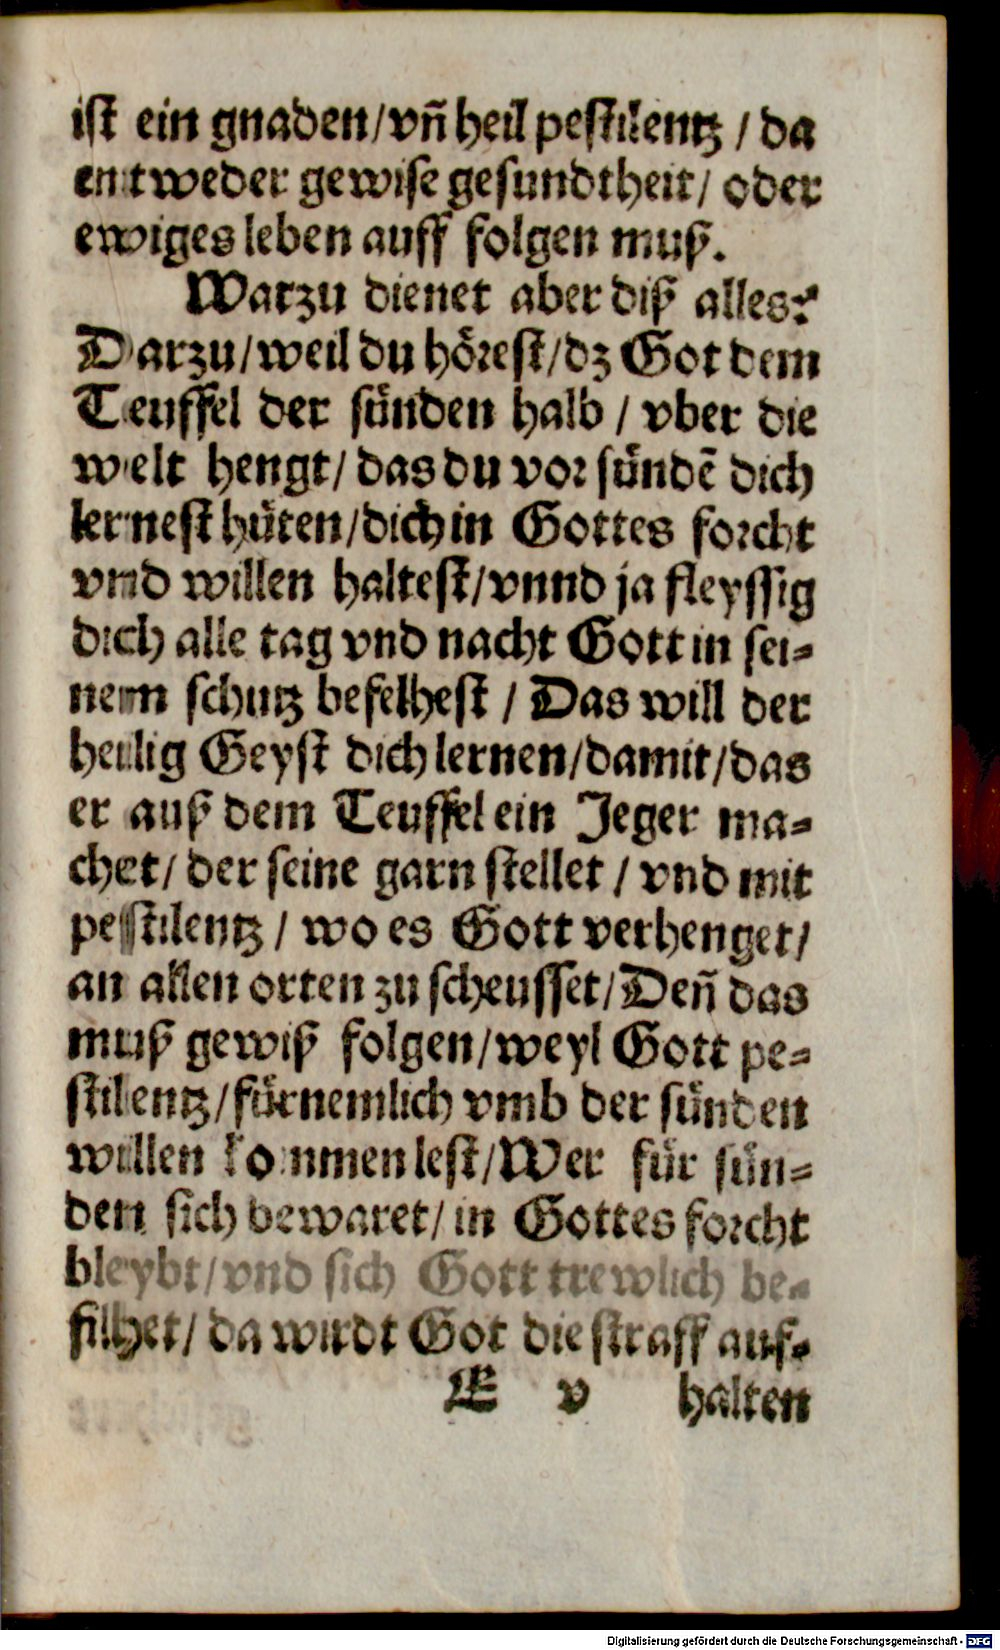 ist ein gnaden/vñ heil pestilentz / da
entweder gewise gesundtheit/ oder
ewiges leben auff folgen muß.
Warzu dienet aber diß alles?
Darzu/weil du hörest/dz Got dem
Teuffel der sünden halb / vber die
welt hengt/ das du vor sündẽ dich
lernest hüten/dich in Gottes forcht
vnd willen haltest/vnnd ja fleyssig
dich alle tag vnd nacht Gott in sei-
nem schutz befelhest / Das will der
heilig Geyst dich lernen/damit/das
er auß dem Teuffel ein Jeger ma-
chet/ der seine garn stellet / vnd mit
pestilentz / wo es Gott verhenget/
an allen orten zu scheusset/Deñ das
muß gewiß folgen/weyl Gott pe-
stilentz/fürnemlich vmb der sünden
willen kommen lest/Wer für sün-
den sich bewaret/in Gottes forcht
bleybt/vnd sich Gott trewlich be-
filhet/ da wirdt Got die straff auf-
E v halten
Digitalisierung gefördert durch die Deutsche Forschungsgemeinschaft - DFG